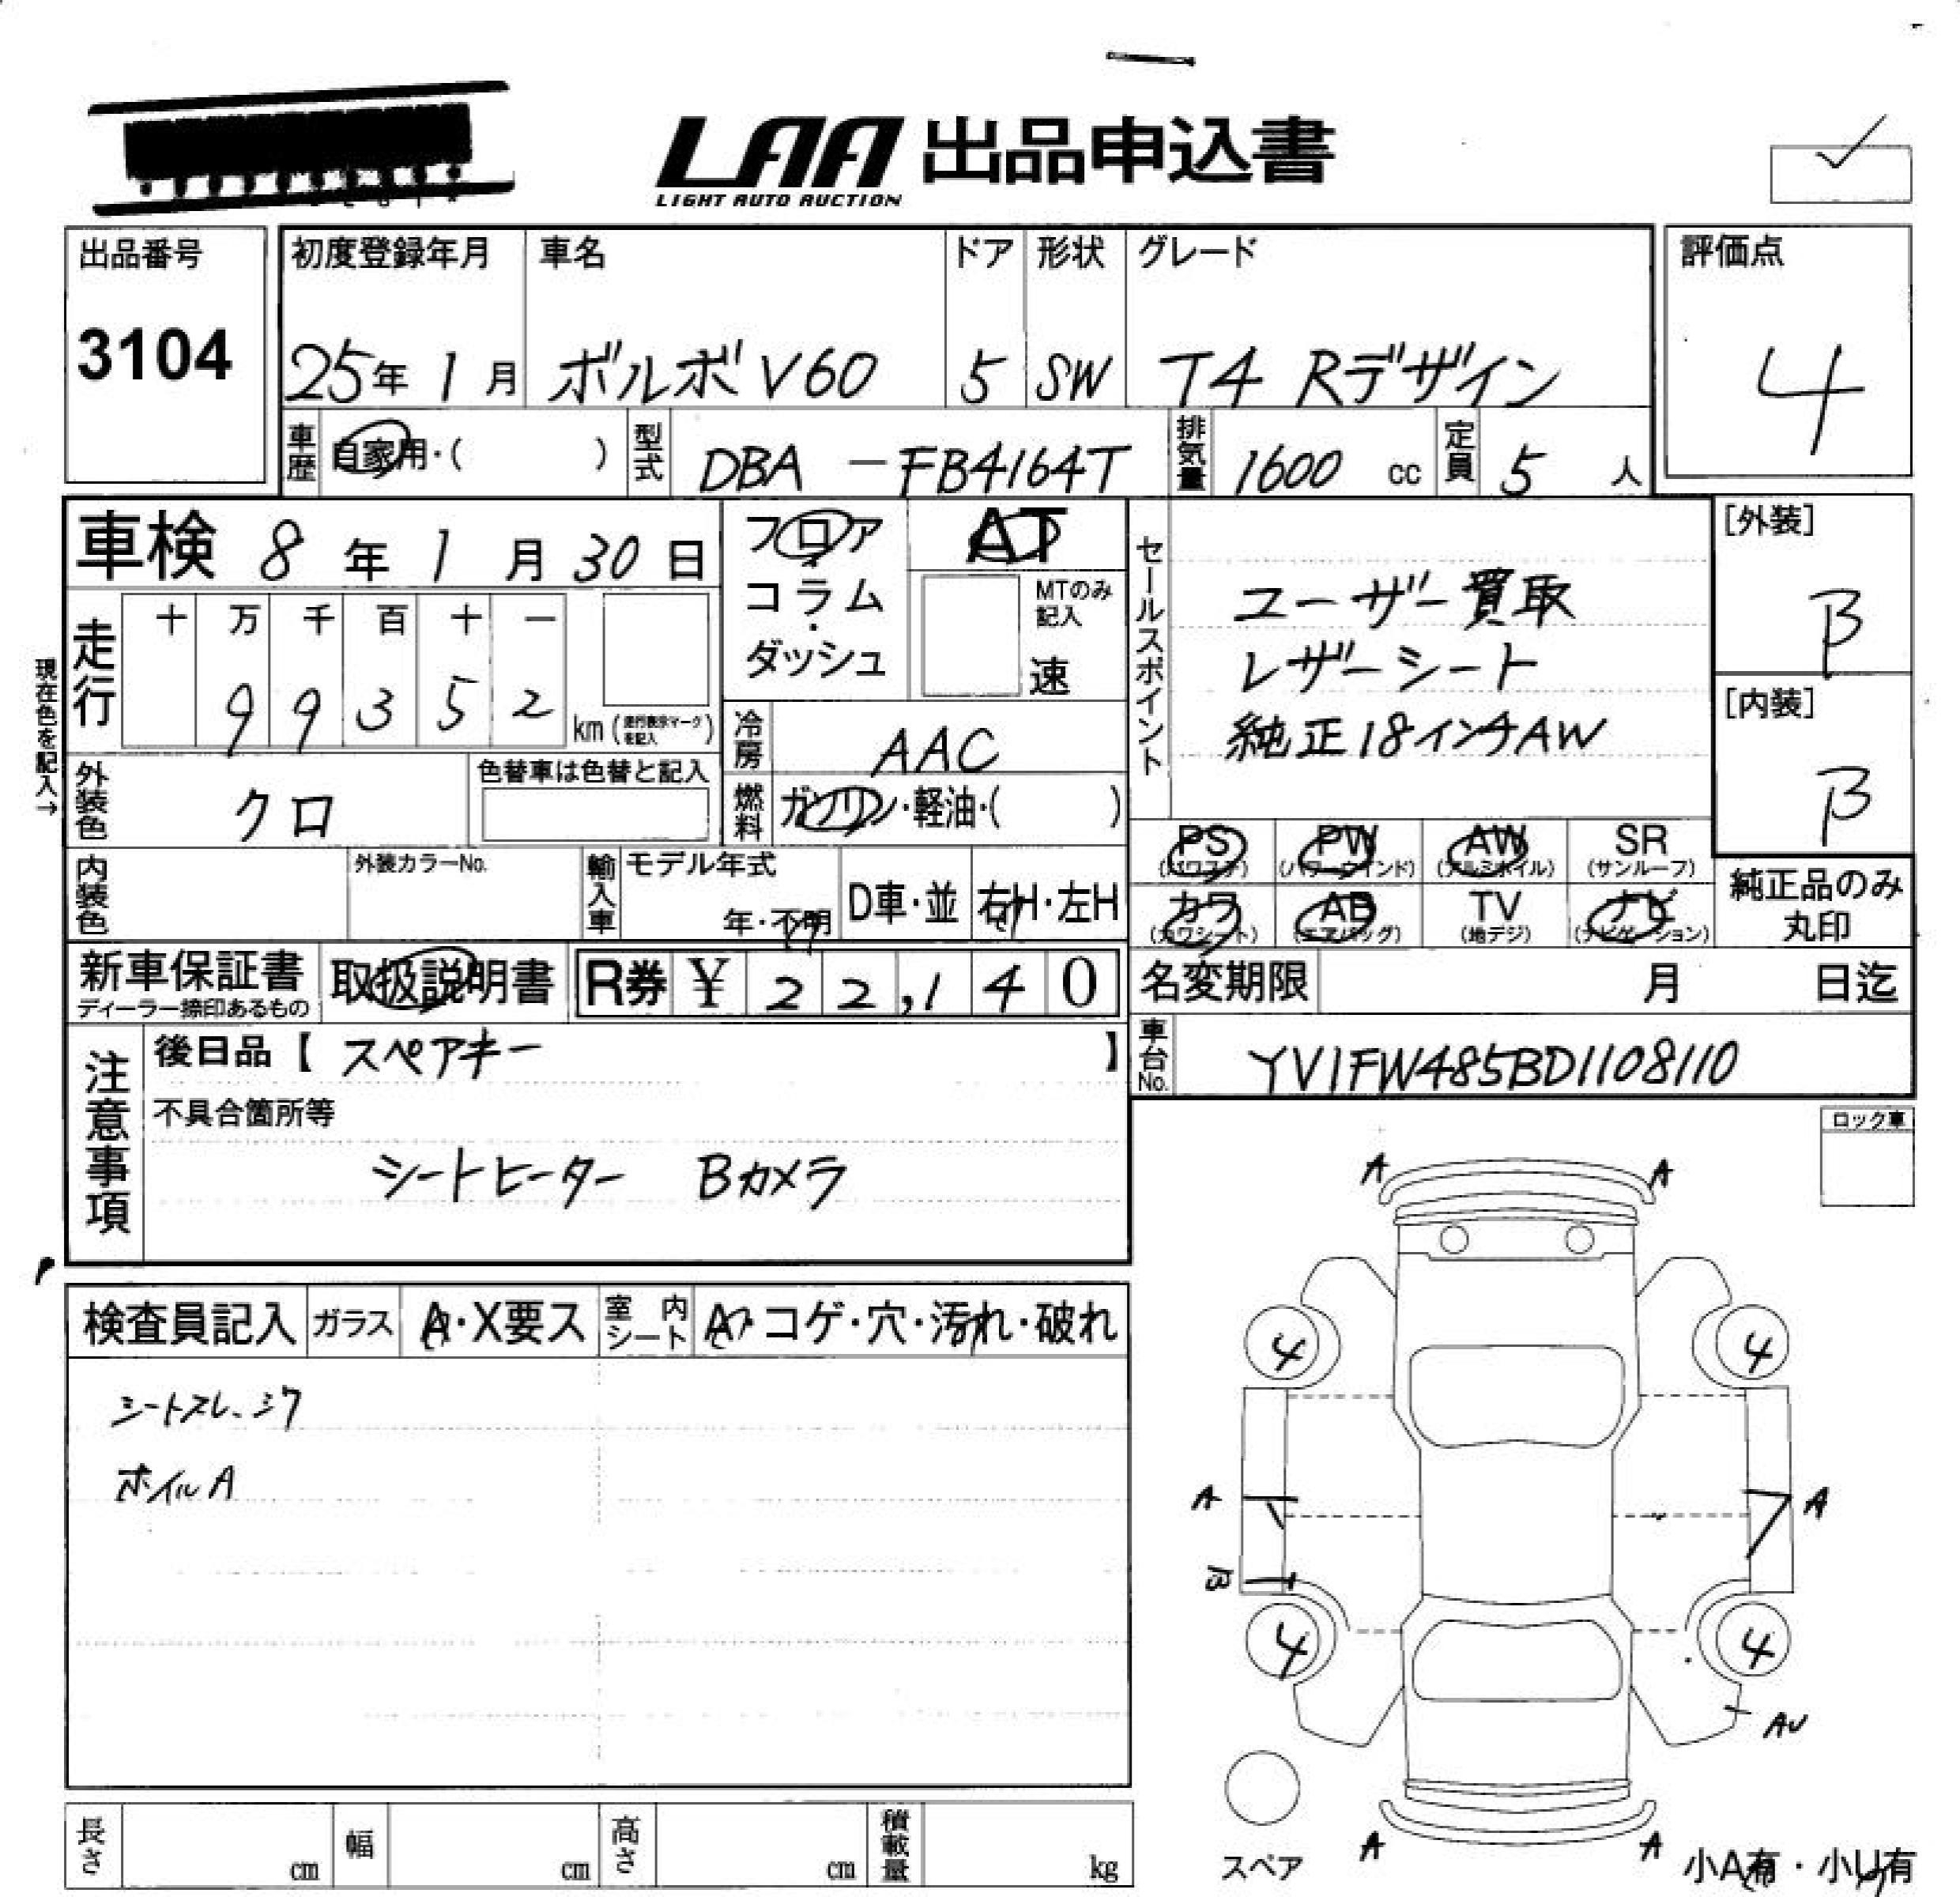 LAA 出品申込書
LIGHT AUTO AUCTION
出品番号
3104
初度登録年月
25年 1月
車名
ボルボ V60
ドア
5
形状
SW
グレード
T4 Rデザイン
評価点
4
車歴
自家用・( )
型式
DBA - FB4164T
排気量
1600 cc
定員
5 人
車検 8年 1月 30日
フロア
コラム
・
ダッシュ
AT
MTのみ
記入
速
セールスポイント
ユーザー買取
レザーシート
純正18インチAW
[外装]
B
[内装]
B
現在色を記入→
走行
十 万 千 百 十 一
9 9 3 5 2
km (走行表示マークを記入)
冷房
AAC
外装色
クロ
色替車は色替と記入
燃料
ガソリン・軽油・( )
PS
(パワステ)
PW
(パワーウインド)
AW
(アルミホイル)
SR
(サンルーフ)
カワ
(カワシート)
AB
(エアバッグ)
TV
(地デジ)
ナビ
(ナビゲーション)
純正品のみ
丸印
内装色
外装カラーNo.
輸入車
モデル年式
年・不明
D車・並
右H・左H
新車保証書
ディーラー捺印あるもの
取扱説明書
R券 ¥ 22,140
名変期限 月 日迄
車台No.
YV1FW485BD1108110
注意事項
後日品【 スペアキー 】
不具合箇所等
シートヒーター Bカメラ
ロック車
検査員記入
ガラス
A・X要ス
室内
シート
A・コゲ・穴・汚れ・破れ
シートスレ、シワ
ホイルA
A A
4 4
A A
4 4
AU
A A
スペア
小A有・小U有
長さ cm
幅 cm
高さ cm
積載量 kg